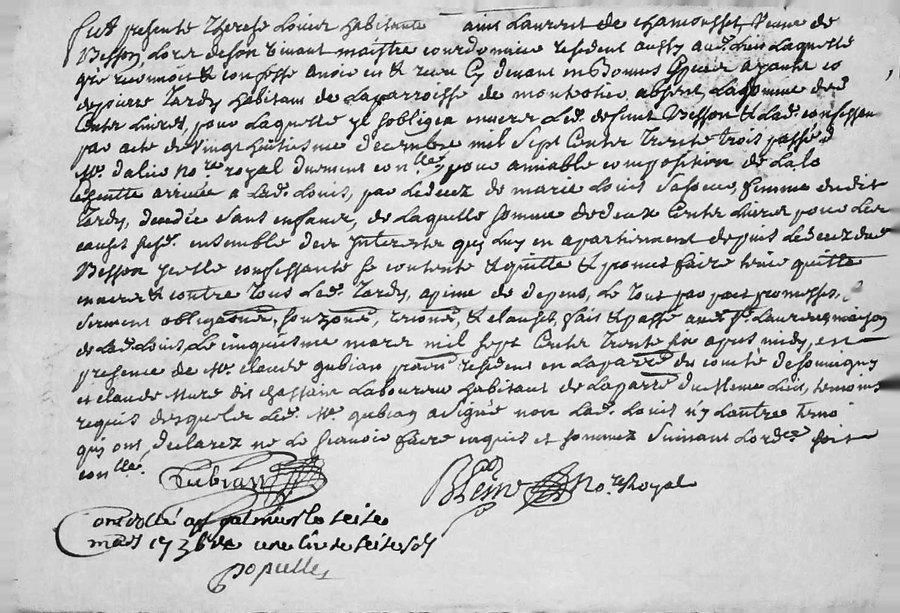 fut presente Therese Louis habitante a saint Laurent de chamousset veuve de
Besson, Lors de son vivant maistre cordonnier resident aussy aud. Lieu Laquelle
gre reconnoit & confesse avoir eu & receu Cy devant en Bonnes
de pierre Tardy habitant de La parroisse de montrotier, absent, La somme de
Cents Livres, pour Laquelle yl s'obligea envers Led. deffunt Besson & Lad. confessante
par acte du vingt huitiesme decembre mil sept Cents Trente trois passé
Me. dalin nore. royal duement conllé, pour amiable composition de La
arrivée a Lad. Louis, par Le decez de marie Louis sa soeur, femme dudit
Tardy, decedée sans enfans, de Laquelle somme de deux Cents Livres pour Les
causes ensemble des Interests quy Luy en apartiennent depuis Le decez dud.
Besson ycelle confessante se contente & quitte & promet faire tenir quitte
envers & contre Tous Led. Tardy, a peine de depens, Le Tout par pact promesses,
serment obligaons, & clauses, fait & passé aud. St. Laurent maison
de Lad. Louis, Le cinquiesme mars mil sept Cents Trente six apres midy, en
presence de Me. claude gubian resident en La parre. du comté de
et claude Mure dit chastain Laboureur habitant de La parre. du Meme Lieu, temoins
requis desquels Led. Me gubian a signé non Lad. Louis n'y L'autre temoin
qui ont declarez ne le scavoir faire enquis et sommez suivant L'ordce. soit
conllé.
Gubian
Nore. Royal
controllé le seise
mars 1736 une Liv. seise sols